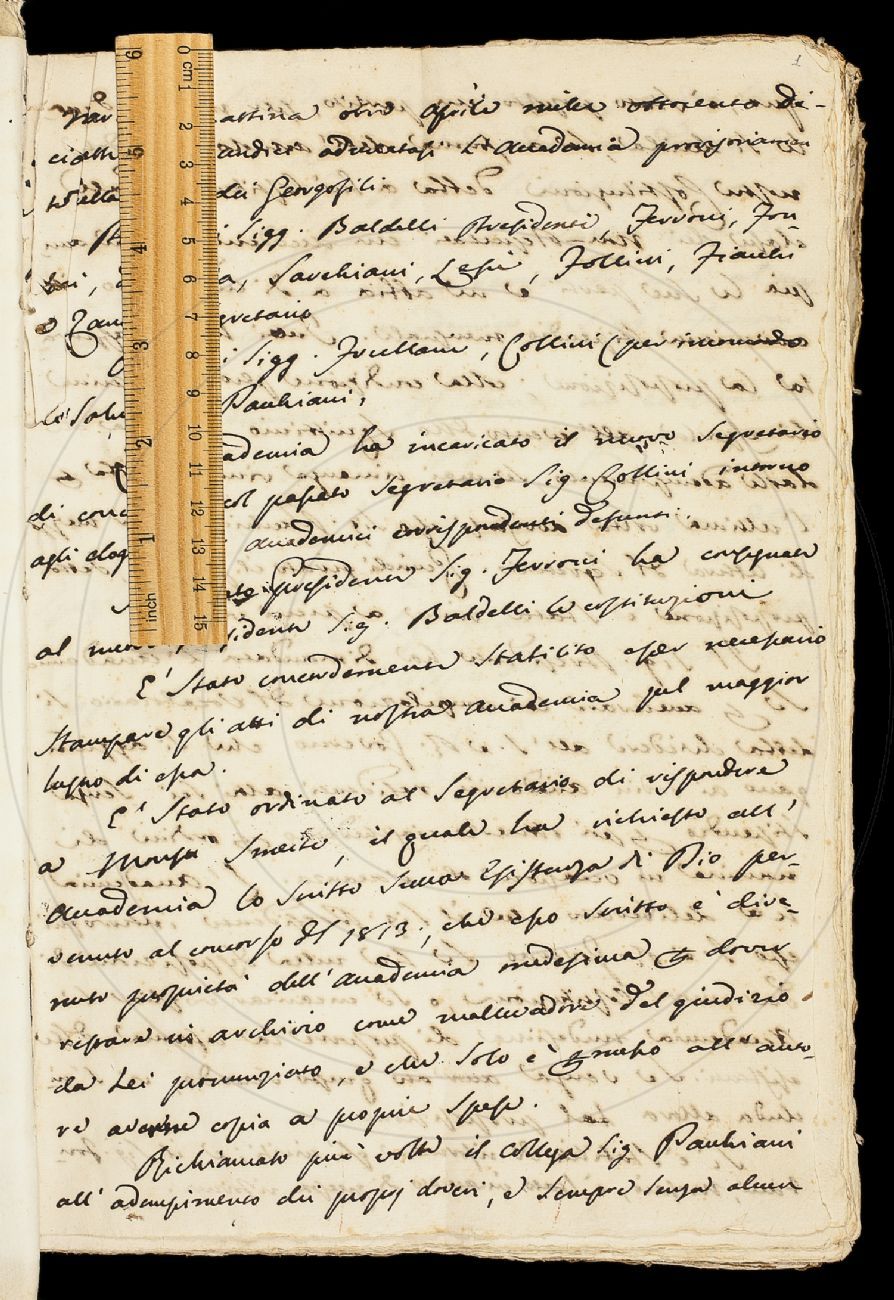 1
attina otto Aprile mille ottocento di-
ciotto adunatasi l'Accademia provisoriamen
te dei Georgofili
Sigg. Baldelli Presidente, Ferroni, Fon-
Sarchiani, Lessi, Follini, Fiacchi
e Zan gretario
i Sigg. Collini (per
lo Sauchiani,
ademia ha incaricato il nuovo Segretario
di conc col passato Segretario Sig. Collini intorno
agli elog accademici corrispondenti defunti.
Presidente Sig. Ferroni ha consegnate
al nuov sidente Sig. Baldelli le costituzioni
E' stato concordemente stabilito esser necessario
stampare gli atti di nostra accademia pel maggior
lustro di essa.
E' stato ordinato al Segretario di rispondere
a , il quale ha richiesto all'
accademia lo scritto Sulla Esistenza di Dio per-
venuto al concorso del 1813, che esso scritto è dive-
nuto proprietà dell'accademia medesima e dover
restare in archivio come mallevadore del giudizio
da Lei pronunziato, e che solo è permesso all'auto-
re averne copia a proprie spese.
Richiamato più volte il collega Sig. Sauchiani
all'adempimento dei proprj doveri, e sempre senza alcun
0 cm 1 2 3 4 5 6 7 8 9 10 11 12 13 14 15
inch 1 2 3 4 5 6